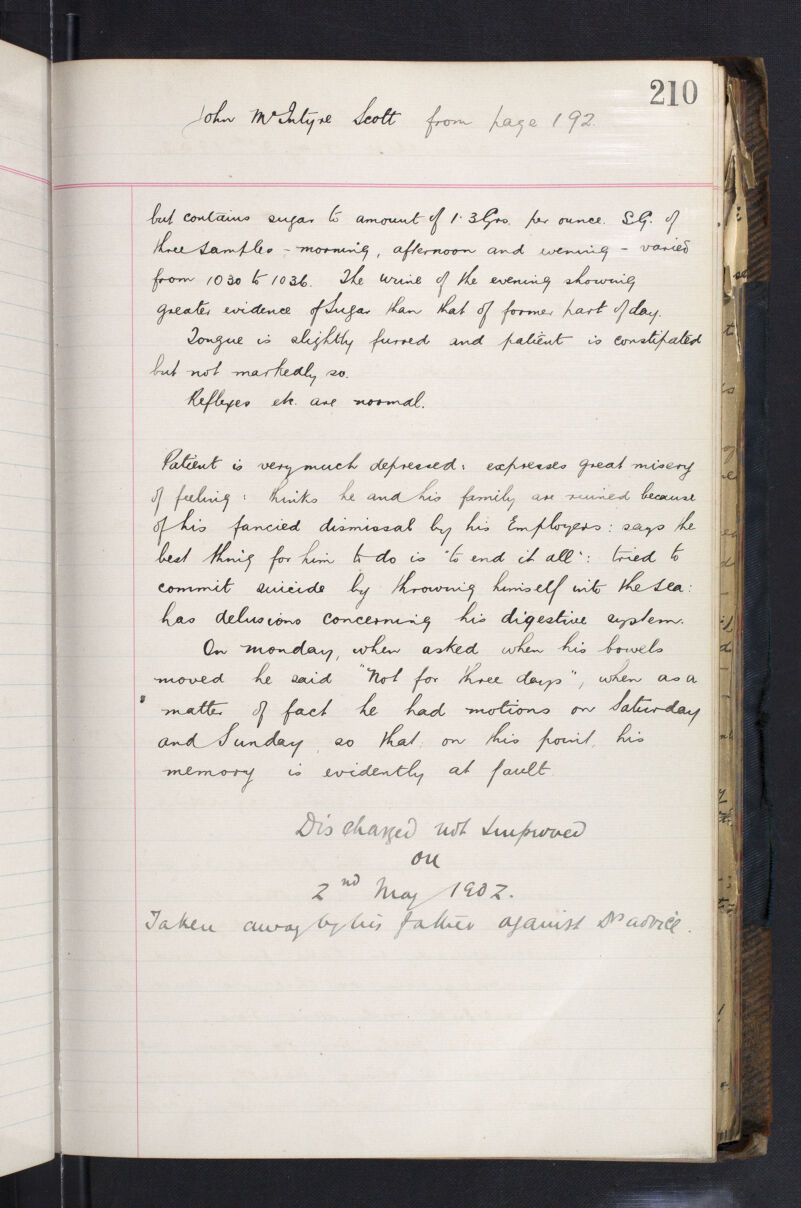 210
John McIntyre Scott from page 192.
but contains sugar to amount of 1.3 Grs. per ounce. S.G. of
three samples - morning, afternoon and evening - varied
from 1030 to 1036. The urine of the evening showing
greater evidence of Sugar than that of former part of day.
Tongue is slightly furred and patient is constipated
but not markedly so.
Reflexes etc. are normal.
Patient is very much depressed: expresses great misery
of feeling: thinks he and his family are ruined because
of his fancied dismissal by his Employers: says the
best thing for him to do is "to end it all": tried to
commit suicide by throwing himself into the sea:
has delusions concerning his digestive system.
On monday, when asked when his bowels
moved he said "Not for three days", when as a
matter of fact he had motions on Saturday
and Sunday, so that, on this point, his
memory is evidently at fault.
Discharged not Improved
on
2nd May 1902.
Taken away by his father against Drs advice.